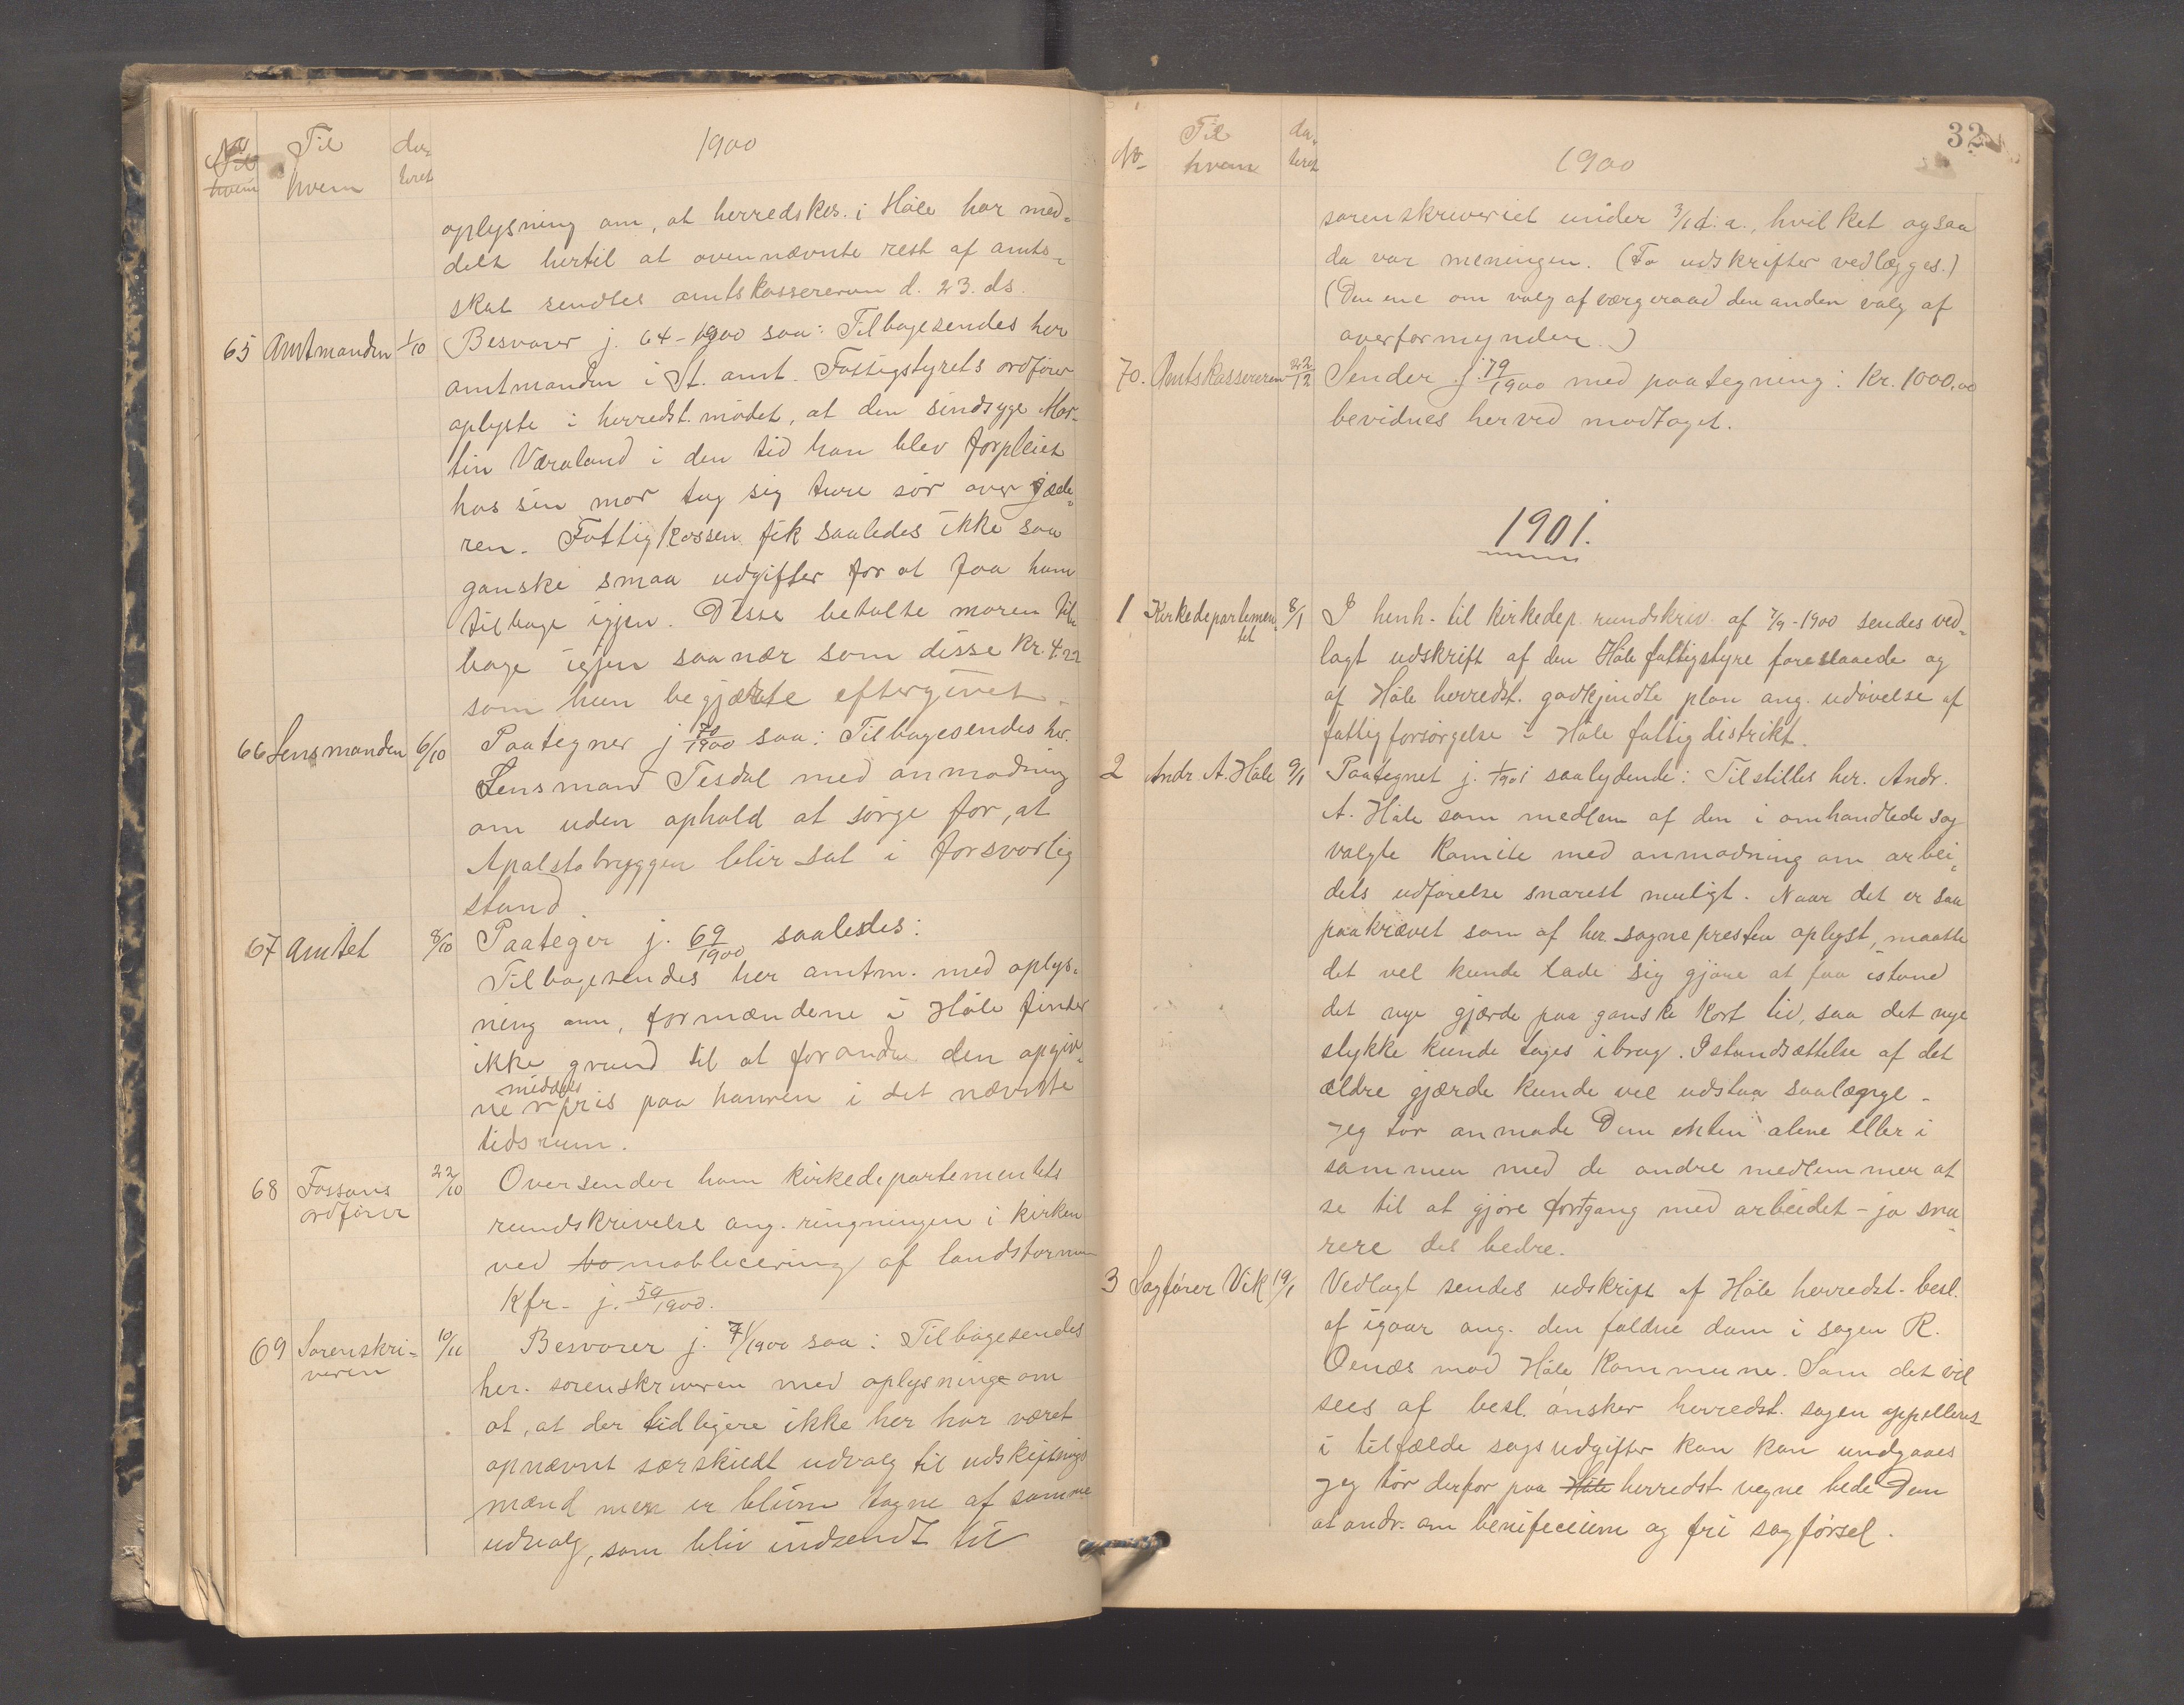 No Til da-
hvem hvem teret
1900
oplysning om, at herredskas. i Håle har med-
delt hertil at ovennævnte rest af amts-
skat sendtes amtskassereren d. 23. ds.
65 Amtmanden 1/10 Besvarer j. 64-1900 saa: Tilbagesendes her
amtmanden i St. amt. Fattigstyrets ordfører
oplyste i herredst. mødet, at den sindsyge Mar-
tin Væraland i den tid han blev forpleiet
hos sin mor tog sig ture sør over Jæde-
ren. Fattigkassen fik saaledes ikke saa
ganske smaa udgifter for at faa ham
tilbage igjen. Disse betalte moren tilba-
bage igjen saa nær som disse Kr. 4.22
som hun begjærte eftergivet.
66 Lensmanden 6/10 Paategner j 70/1900 saa: Tilbagesendes hr.
Lensmand Tesdal med anmodning
om uden ophold at sørge for, at
Apalstobryggen blir sat i forsvarlig
stand
67 Amtet 8/10 Paateger j. 69/1900 saaledes:
Tilbagesendes her amtm. med oplys-
ning om, formændene i Håle finder
ikke grund til at forandre den opgiv-
middels
ne pris paa havren i det nævnte
tidsrum.
68 Fossans 22/10 Oversender ham kirkedepartementets
ordfører rundskrivelse ang. ringningen i kirken
ved mobliscering af landstormen
Kfr- j. 59/1900.
69 Sorenskri- 10/11 Besvarer j. 71/1900 saa: Tilbagesendes
veren her. sorenskriveren med oplysning om
at, at der tidligere ikke her har været
opnævnt særskildt udvalg til udskiftnings
mænd men er blevne tagne af samme
udvalg, som bliv indsendt til
32
No Til da-
hvem teret
1900
sorenskriveriet under 3/1 d. a., hvilket ogsaa
da var meningen. (To udskrifter vedlægges.)
(Den ene om valg af værgeraad den anden valg af
overformynder.)
70. Amtskassereren 22/12 Sender j 79/1900 med paategning: Kr. 1000,00
bevidnes herved modtaget.
1901.
1 Kirkedepartemen- 8/1 I henh. til kirkedep. rundskriv. af 7/9-1900 sendes ved-
tet lagt udskrift af den Håle fattigstyre foreslaaede og
af Håle herredst. godkjendte plan ang. udøvelse af
fattigforsørgelse i Håle fattigdistrikt.
2 Andr. A. Håle 9/1 Paategnet j. 1/1901 saalydende: Tilstilles her. Andr.
A. Håle som medlem af den i omhandlede sag
valgte Komite med anmodning om arbei-
dets udførelse snarest muligt. Naar det er saa
paakrævet som af her. sognepresten oplyst, maatte
det vel kunde lade sig gjøre at faa istand
det nye gjærde paa ganske kort tid, saa det nye
stykke kunde tages ibrug. Istandsættelse af det
ældre gjærde kunde vel udstaa saalænge.
Jeg tør anmode Dem enten alene eller i
sammen med de andre medlemmer at
se til at gjøre fortgang med arbeidet - jo sna-
rere det bedre.
3 Sagfører Vik 19/1 Vedlagt sendes udskrift af Håle herredst. besl.
af igaar ang. den faldne dom i sagen R.
Oenæs mod Håle Kommune. Som det vil
sees af besl. ønsker herredst. sagen appelleret
i tilfælde sagsudgifter kan kan undgaaes
Jeg tør derfor paa Håle herredst vegne bede Dem
at andr. om benificium og fri sagførsel.